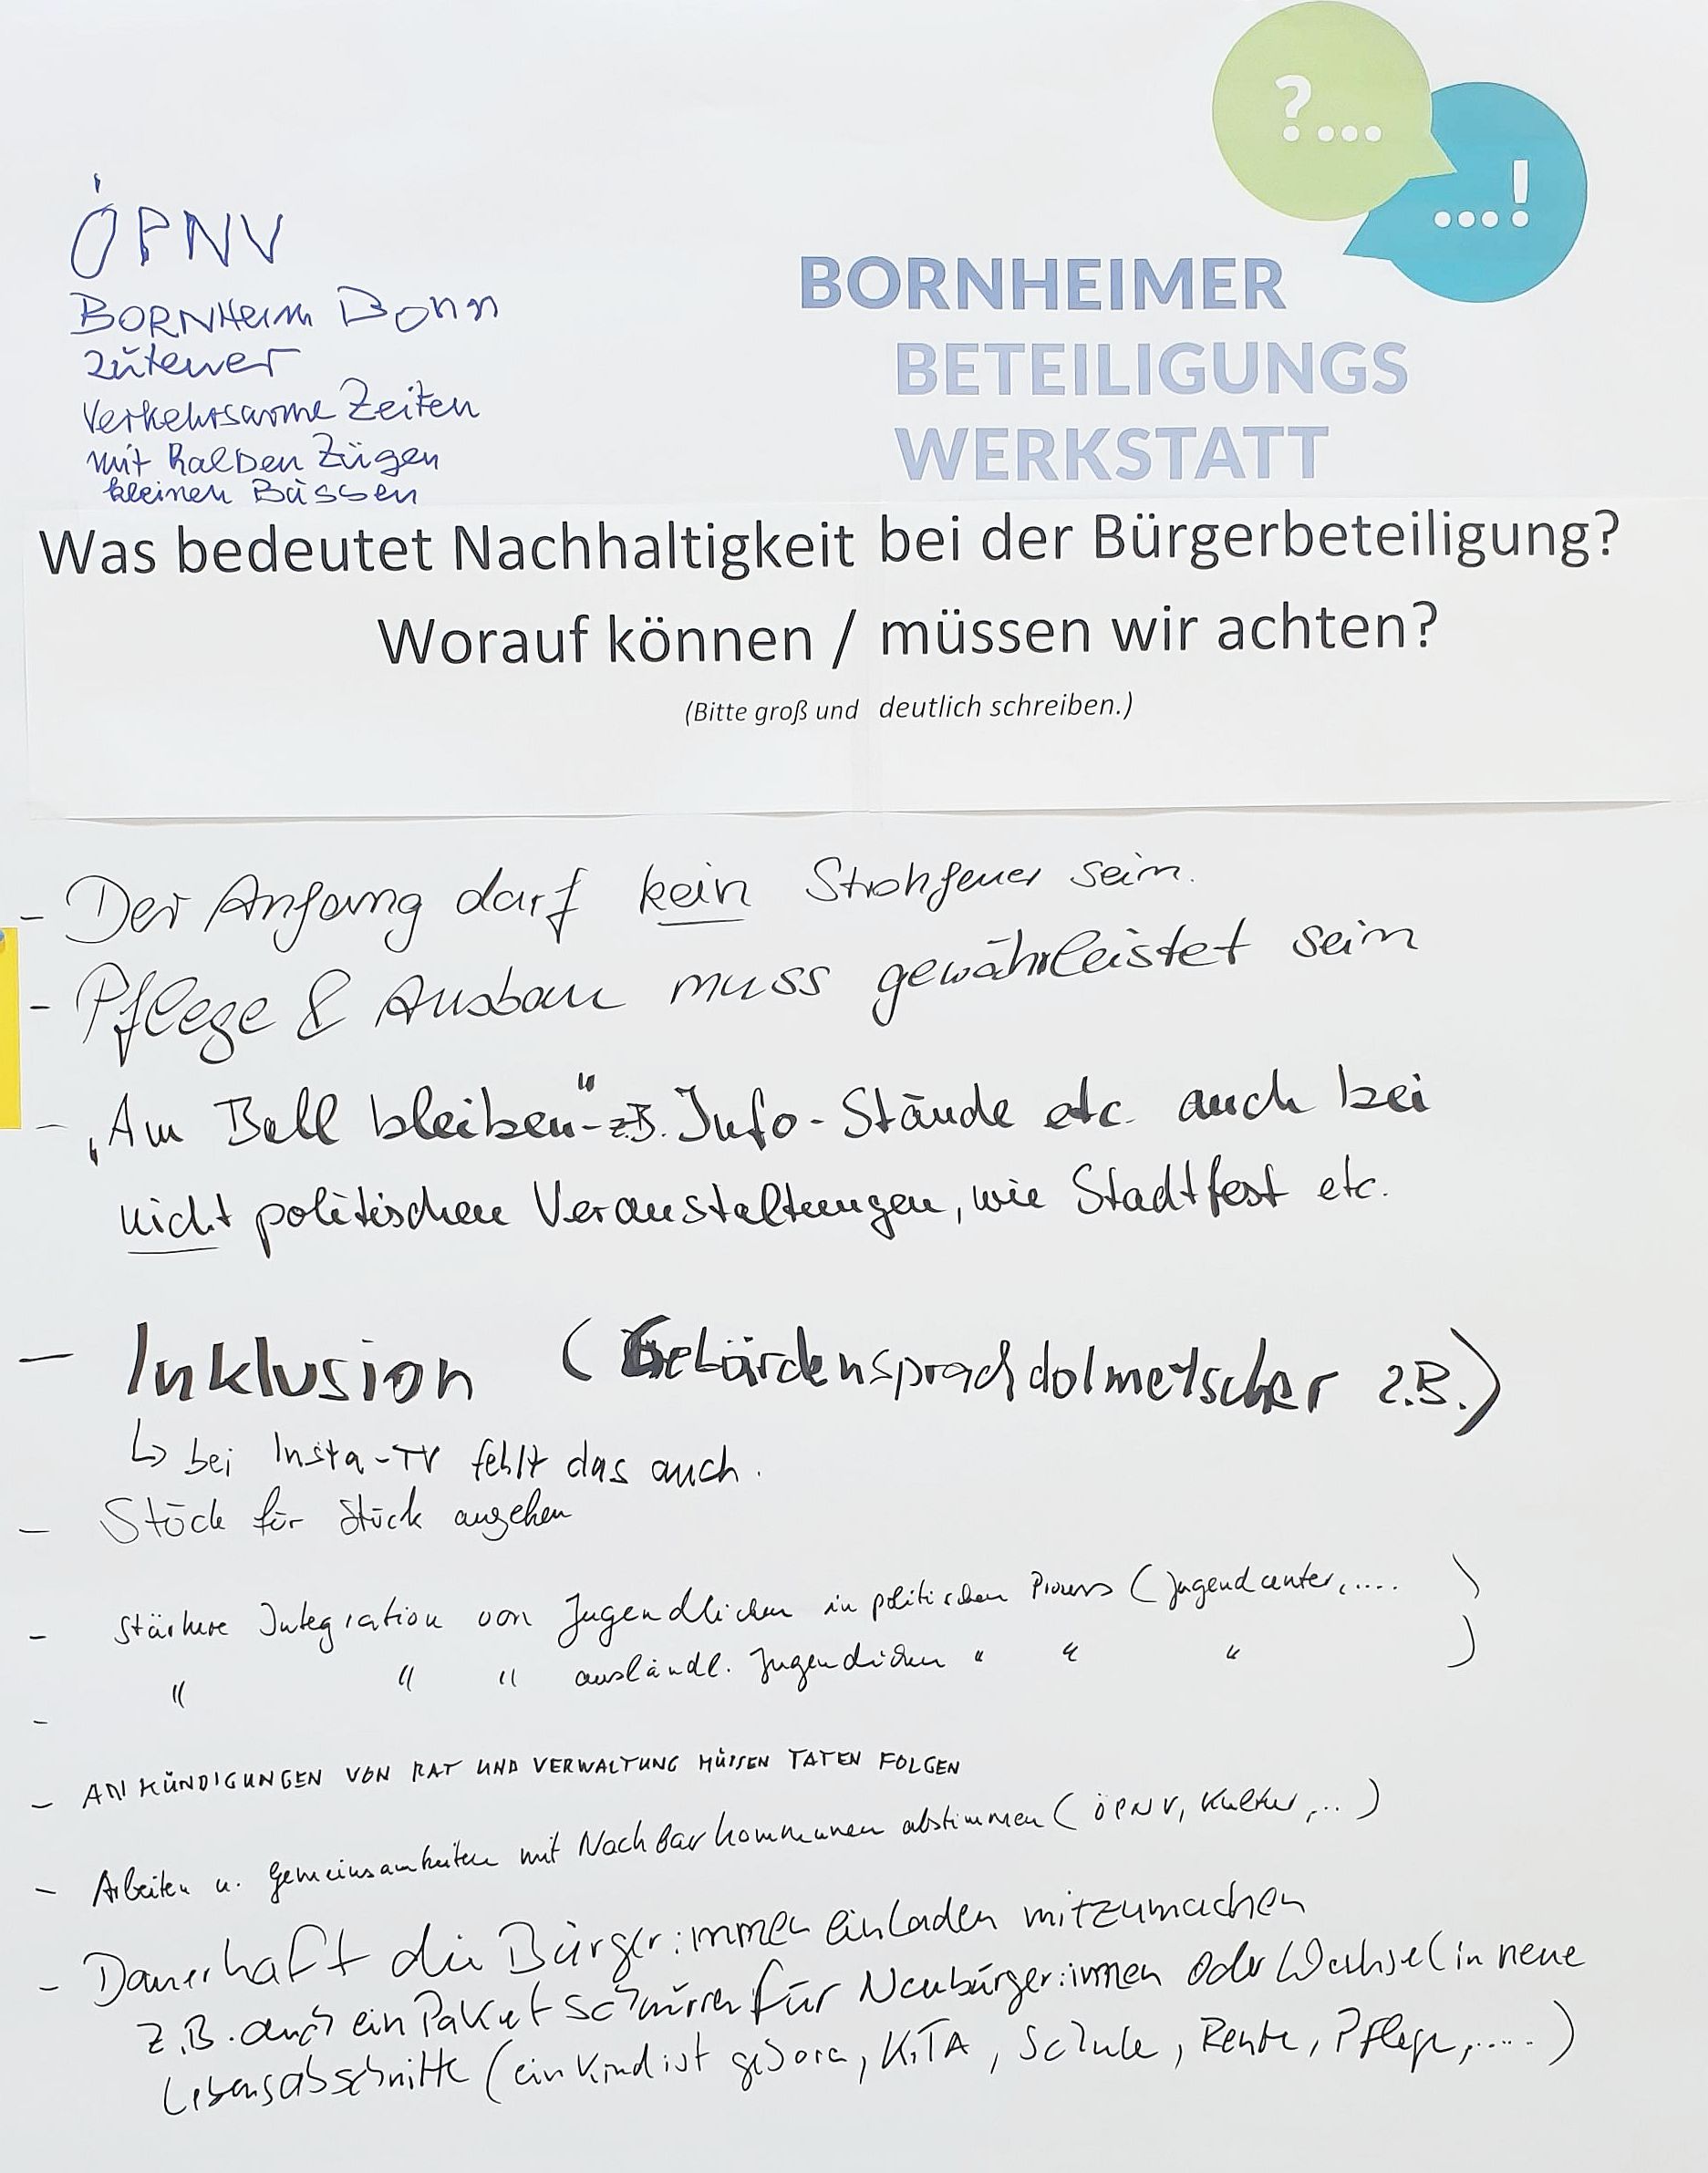 ?...
...!
ÖPNV
BORNHEIM Bonn
zü teuer
Verkehrsarme Zeiten
mit halben Zügen
kleinen Büssen
BORNHEIMER
BETEILIGUNGS
WERKSTATT
Was bedeutet Nachhaltigkeit bei der Bürgerbeteiligung?
Worauf können / müssen wir achten?
(Bitte groß und deutlich schreiben.)
- Der Anfang darf kein Strohfeuer sein.
- Pflege & Ausbau muss gewährleistet sein
- „Am Ball bleiben" - z.B. Info-Stände etc. auch bei
nicht politischen Veranstaltungen, wie Stadtfest etc.
- Inklusion (Gebärdensprachdolmetscher z.B.)
↳ bei Insta-TV fehlt das auch.
- Stück für Stück angehen
- Stärkere Integration von Jugendlichen in politischen Prozess (Jugendcenter,.... )
- " " " ausländl. Jugendlichen " " " )
- ANKÜNDIGUNGEN VON RAT UND VERWALTUNG MÜSSEN TATEN FOLGEN
- Arbeiten u. Gemeinsamkeiten mit Nachbarkommunen abstimmen (ÖPNV, Kultur,...)
- Dauerhaft die Bürger:innen einladen mitzumachen
z.B. auch ein Paket schnüren für Neubürger:innen oder Wechsel in neue
Lebensabschnitte (ein Kind ist geboren, KiTA, Schule, Rente, Pflege,.....)